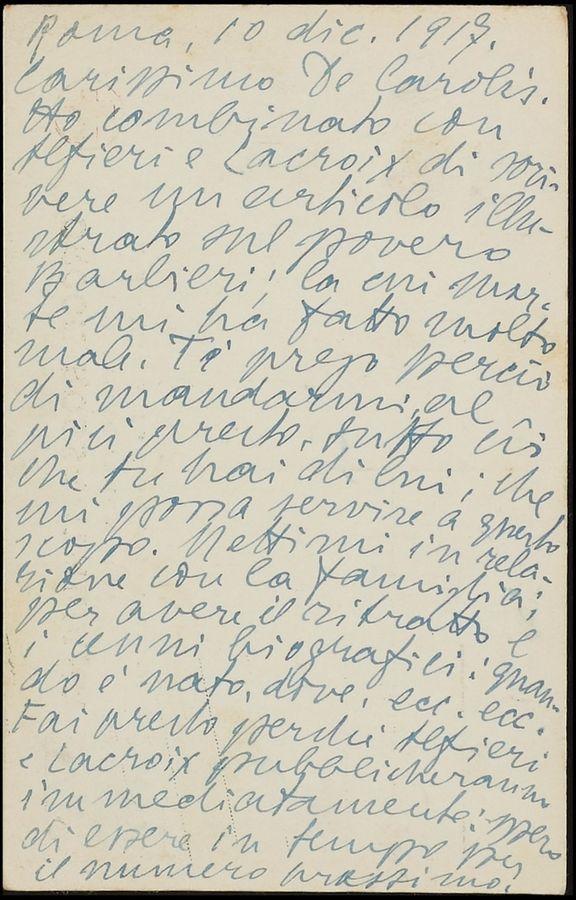 Roma, 10 dic. 1917.
Carissimo De Carolis.
Ho combinato con
Alfieri e Lacroix di scri-
vere un articolo illu-
strato sul povero
Barbieri, la cui mor-
te mi ha fatto molto
male. Ti prego perciò
di mandarmi, al
più presto, tutto ciò
che tu hai di lui, che
mi possa servire a questo
scopo. Mettimi in rela-
zione con la famiglia,
per avere il ritratto e
i cenni biografici: quan-
do è nato, dove, ecc. ecc.
Fai presto perché Alfieri
e Lacroix pubblicheranno
immediatamente: spero
di essere in tempo per
il numero prossimo.